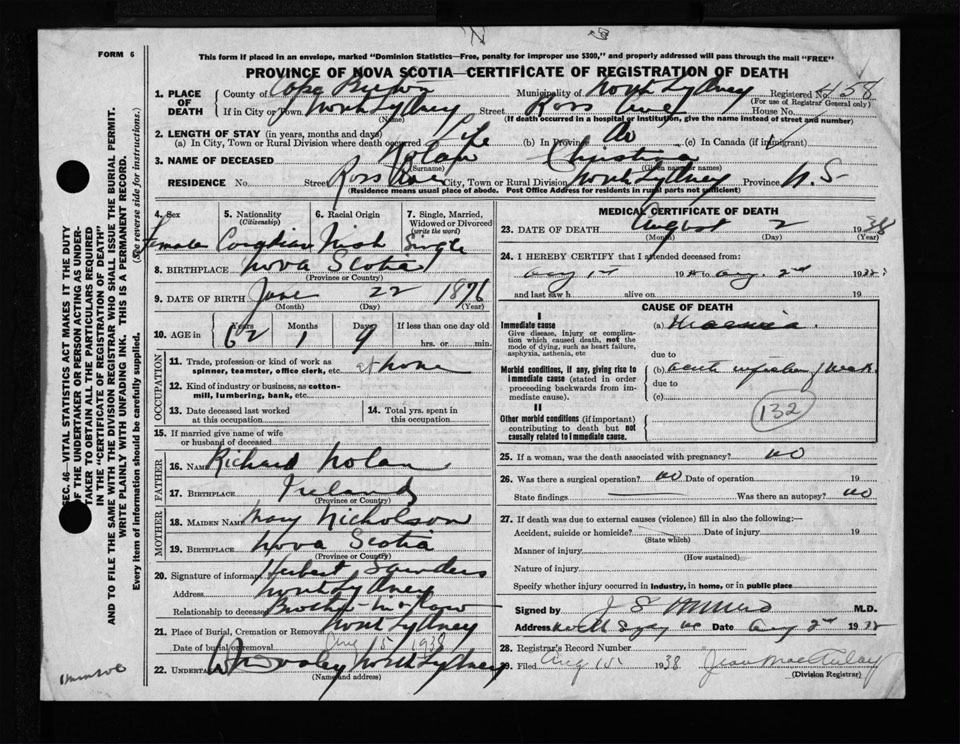 FORM 6
This form if placed in an envelope, marked "Dominion Statistics—Free, penalty for improper use $300," and properly addressed will pass through the mail "FREE"
PROVINCE OF NOVA SCOTIA—CERTIFICATE OF REGISTRATION OF DEATH
1. PLACE OF DEATH
County of Cape Breton Municipality of North Sydney Registered No. 458
(For use of Registrar General only)
If in City or Town North Sydney Street Ross Ave House No.
(Name) (If death occurred in a hospital or institution, give the name instead of street and number)
2. LENGTH OF STAY (in years, months and days)
(a) In City, Town or Rural Division where death occurred Life (b) In Province do (c) In Canada (if immigrant)
3. NAME OF DECEASED Nolan Christina
(Surname) (Given name or names)
RESIDENCE No. Street Ross Ave City, Town or Rural Division North Sydney Province N. S
(Residence means usual place of abode. Post Office Address for residents in rural parts not sufficient)
4. Sex 5. Nationality (Citizenship) 6. Racial Origin 7. Single, Married, Widowed or Divorced (write the word)
Female Canadian Irish Single
8. BIRTHPLACE Nova Scotia
(Province or Country)
9. DATE OF BIRTH June 22 1876
(Month) (Day) (Year)
10. AGE in Years Months Days If less than one day old
62 1 9 hrs. or min.
OCCUPATION
11. Trade, profession or kind of work as spinner, teamster, office clerk, etc. at home
12. Kind of industry or business, as cotton-mill, lumbering, bank, etc.
13. Date deceased last worked at this occupation
14. Total yrs. spent in this occupation
15. If married give name of wife or husband of deceased
FATHER
16. Name Richard Nolan
17. BIRTHPLACE Ireland
(Province or Country)
MOTHER
18. MAIDEN NAME Mary Nicholson
19. BIRTHPLACE Nova Scotia
(Province or Country)
20. Signature of informant Herbert Saunders
Address North Sydney
Relationship to deceased Brother-in-law
21. Place of Burial, Cremation or Removal North Sydney
Date of burial or removal Aug 15 1938
22. UNDERTAKER North Sydney
(Name and address)
MEDICAL CERTIFICATE OF DEATH
23. DATE OF DEATH August 2 1938
(Month) (Day) (Year)
24. I HEREBY CERTIFY that I attended deceased from:
Aug 1st 19 to Aug. 2nd 1938
and last saw h alive on 19
CAUSE OF DEATH
I
Immediate cause
Give disease, injury or complication which caused death, not the mode of dying, such as heart failure, asphyxia, asthenia, etc
(a)
due to
Morbid conditions, if any, giving rise to immediate cause (stated in order proceeding backwards from immediate cause).
(b) acute
due to
(c)
132
II
Other morbid conditions (if important) contributing to death but not causally related to immediate cause.
25. If a woman, was the death associated with pregnancy? no
26. Was there a surgical operation? no Date of operation 19
State findings Was there an autopsy? no
27. If death was due to external causes (violence) fill in also the following:—
Accident, suicide or homicide? Date of injury 19
(State which)
Manner of injury
(How sustained)
Nature of injury
Specify whether injury occurred in industry, in home, or in public place
Signed by M.D.
Address North Sydney Date Aug 2nd 1938
28. Registrar's Record Number
29. Filed Aug 15 1938 Jean MacAulay
(Division Registrar)
SEC. 46—VITAL STATISTICS ACT MAKES IT THE DUTY OF THE UNDERTAKER OR PERSON ACTING AS UNDERTAKER TO OBTAIN ALL THE PARTICULARS REQUIRED IN THE "CERTIFICATE OF REGISTRATION OF DEATH" AND TO FILE THE SAME WITH THE DIVISION REGISTRAR WHO SHALL ISSUE THE BURIAL PERMIT.
WRITE PLAINLY WITH UNFADING INK. THIS IS A PERMANENT RECORD.
Every item of information should be carefully supplied. (See reverse side for instructions.)